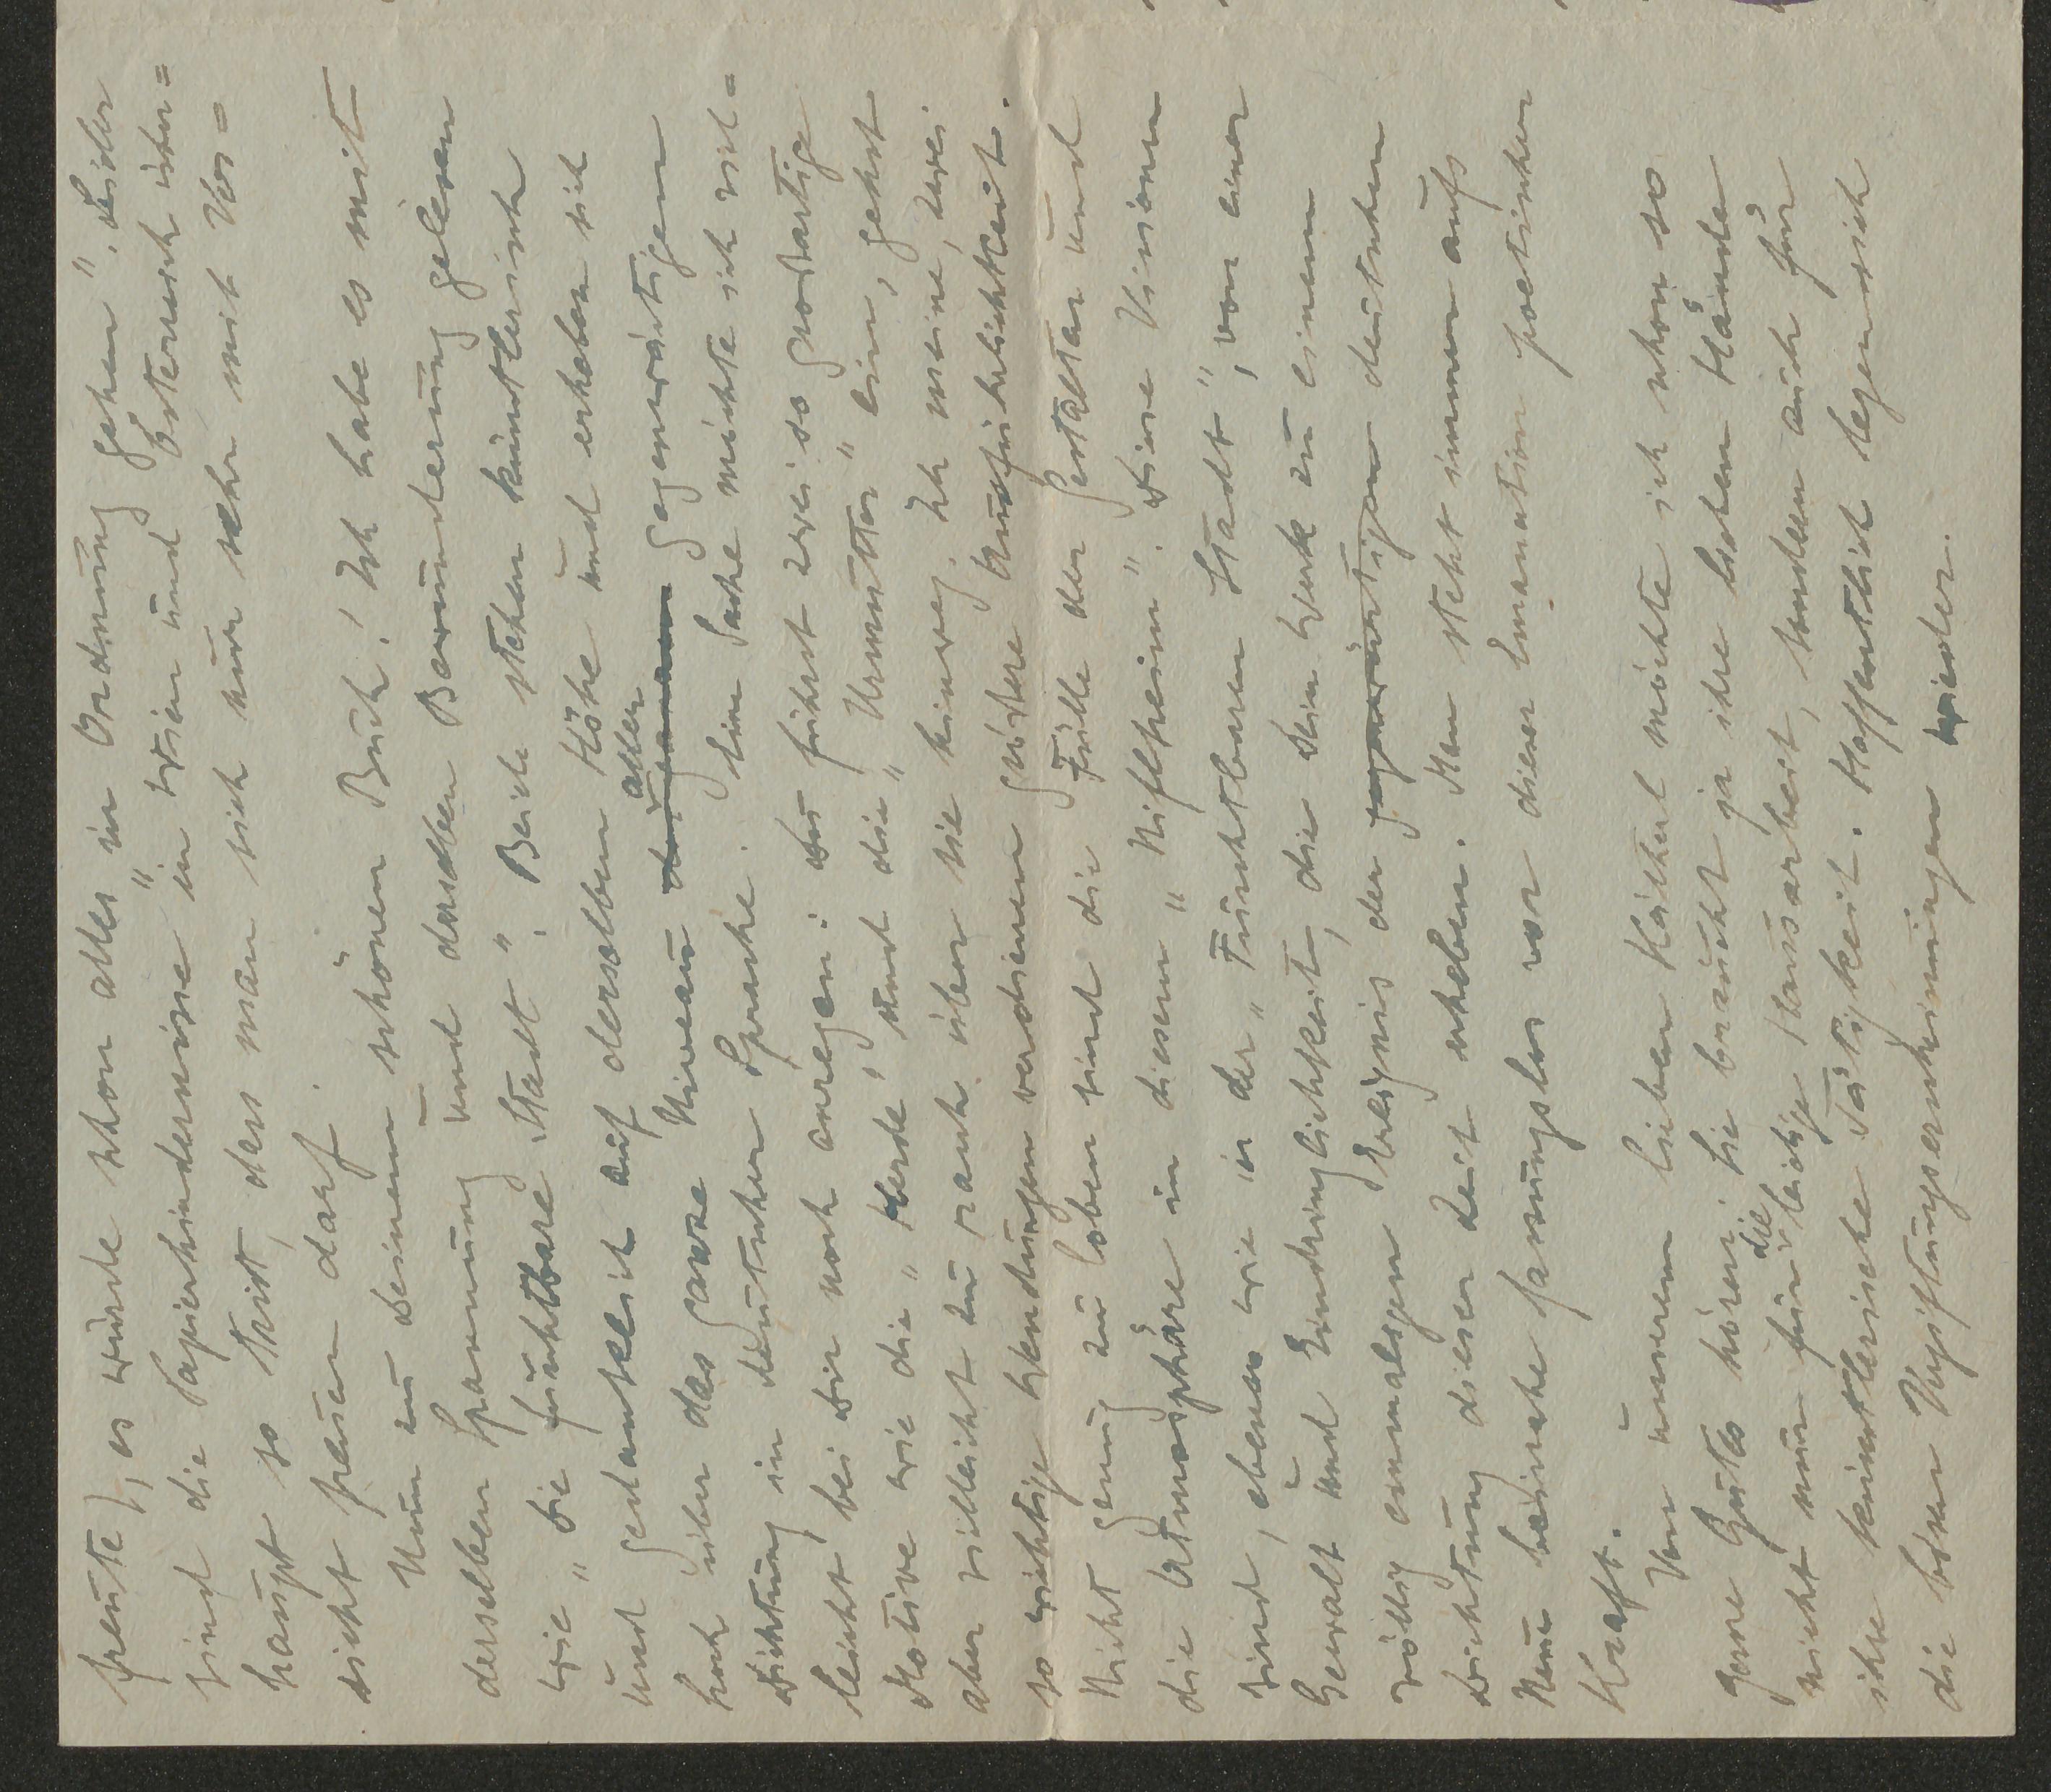 freute), es würde schon alles „in Ordnung gehen". Leider
sind die Papierhindernisse in Wien und Österreich über=
haupt so trist, dass man sich nur sehr mit Vor=
sicht freuen darf.
Nun zu Deinem schönen Buch! Ich habe es mit
derselben Spannung und derselben Bewunderung gelesen
wie „Die furchtbare Stadt". Beide stehen künstlerisch
und gedanklich auf derselben Höhe und erheben sich
hoch über das ganze Niveau aller gegenwärtigen
Dichtung in deutscher Sprache. Eine Sache möchte ich viel=
leicht bei Dir noch anregen: Du führst zwei so großartige
Motive wie die „Herde" und die „Urmutter" ein, gehst
aber vielleicht zu rasch über sie hinweg. Ich meine, zwei
so wichtige Wendungen verdienen größere Ausführlichkeit.
Nicht genug zu loben sind die Fülle der Gestalten und
die Atmosphäre in diesem „Niflheim". Deine Visionen
sind, ebenso wie in der „Furchtbaren Stadt", von einer
Gewalt und Eindringlichkeit, die Dein Werk zu einem
völlig einmaligen Ereignis der gegenwärtigen deutschen
Dichtung dieser Zeit erheben. Man steht immer aufs
Neue beinahe fassungslos vor dieser Emanation poetischer
Kraft.
Von unserem lieben Kätherl möchte ich schon so
gerne Gutes hören! Sie braucht ja ihre lieben Hände
nicht nur für die leidige Hausarbeit, sondern auch für
ihre künstlerische Tätigkeit. Hoffentlich legen sich
die bösen Vergiftungserscheinungen wieder.